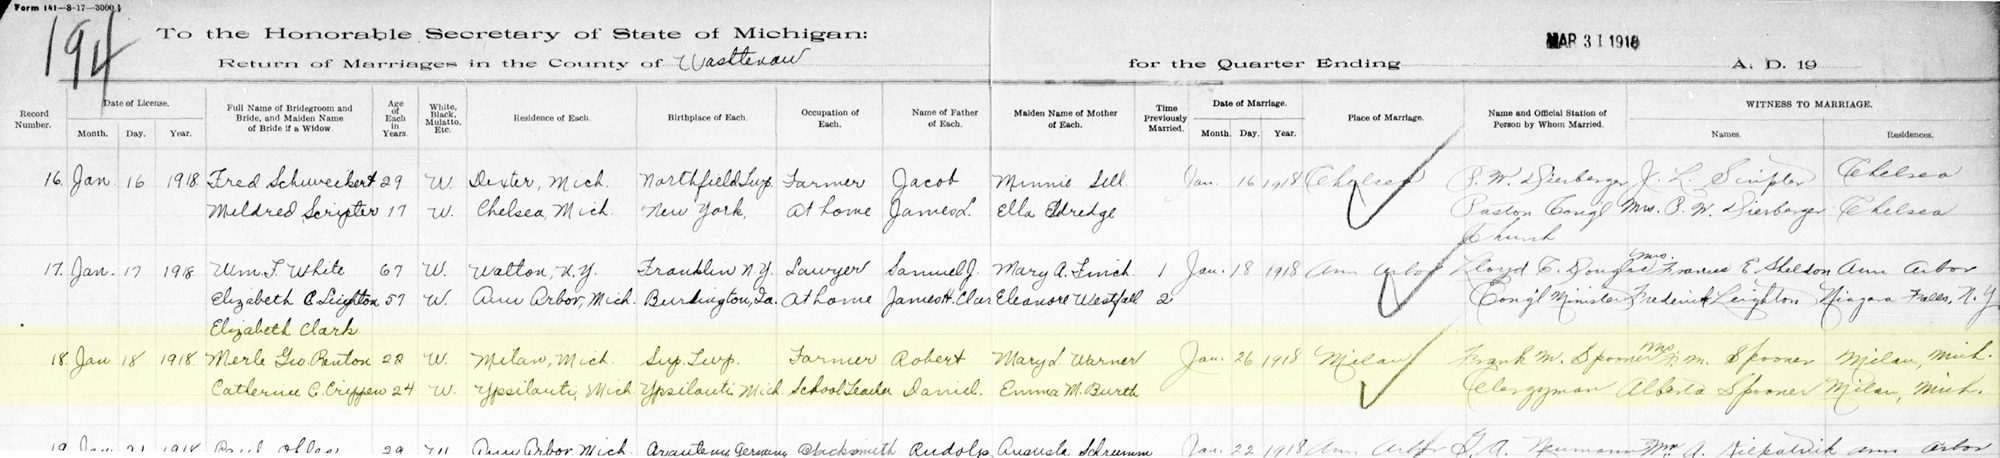 Form 141-8-17-3000
194
To the Honorable Secretary of State of Michigan:
MAR 31 1918
Return of Marriages in the County of Washtenaw for the Quarter Ending A. D. 19
Record Number. Date of License. Month. Day. Year. Full Name of Bridegroom and Bride, and Maiden Name of Bride if a Widow. Age of Each in Years. White, Black, Mulatto, Etc. Residence of Each. Birthplace of Each. Occupation of Each. Name of Father of Each. Maiden Name of Mother of Each. Time Previously Married. Date of Marriage. Month. Day. Year. Place of Marriage. Name and Official Station of Person by Whom Married. WITNESS TO MARRIAGE. Names. Residences.
16. Jan. 16 1918 Fred Schweikert 29 W. Dexter, Mich. Northfield Twp. Farmer Jacob Minnie Sell Jan. 16 1918 Chelsea P. W. Dierberger J. L. Scripter Chelsea
Mildred Scripter 17 W. Chelsea, Mich. New York, At home James L. Ella Eldredge Pastor Congl Mrs. P. W. Dierberger Chelsea
Church
17. Jan. 17 1918 Wm. F. White 67 W. Walton, N.Y. Franklin N.Y. Lawyer Samuel J. Mary A. Finch 1 Jan. 18 1918 Ann Arbor Lloyd C. Douglas Mrs. Frances E. Sheldon Ann Arbor
Elizabeth C. Leighton 57 W. Ann Arbor, Mich. Burlington, Ia. At home James H. Clar Eleanore Westfall 2 Cong'l Minister Frederick Leighton Niagara Falls, N.Y
Elizabeth Clark
18. Jan 18 1918 Merle Geo Renton 28 W. Milan, Mich. Sup. Twp. Farmer Robert Mary L. Warner Jan. 26 1918 Milan Frank M. Spooner Mrs F. M. Spooner Milan, Mich.
Catherine C. Crippen 24 W. Ypsilanti, Mich Ypsilanti Mich School Teacher Daniel. Emma M. Burth Clergyman Alberta Spooner Milan, Mich.
19 Jan 21 1918 Paul 29 W. Ann Arbor, Mich. Germany Blacksmith Rudolp Augusta Schramm Jan. 22 1918 Ann Arbor G. A. Neumann Mrs A. Kilpatrick Ann Arbor